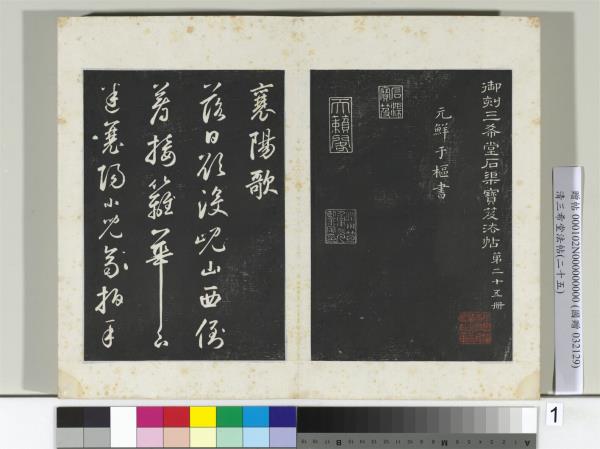 御刻三希堂石渠寶笈法帖第二十五册
元鮮于樞書
石渠寶笈
天籟閣
襄陽歌
落日欲沒峴山西倒
著接籬華下
迷襄陽小兒齊拍手
贈帖 000102N000000000 (國贈 032129)
清三希堂法帖(二十五)
1